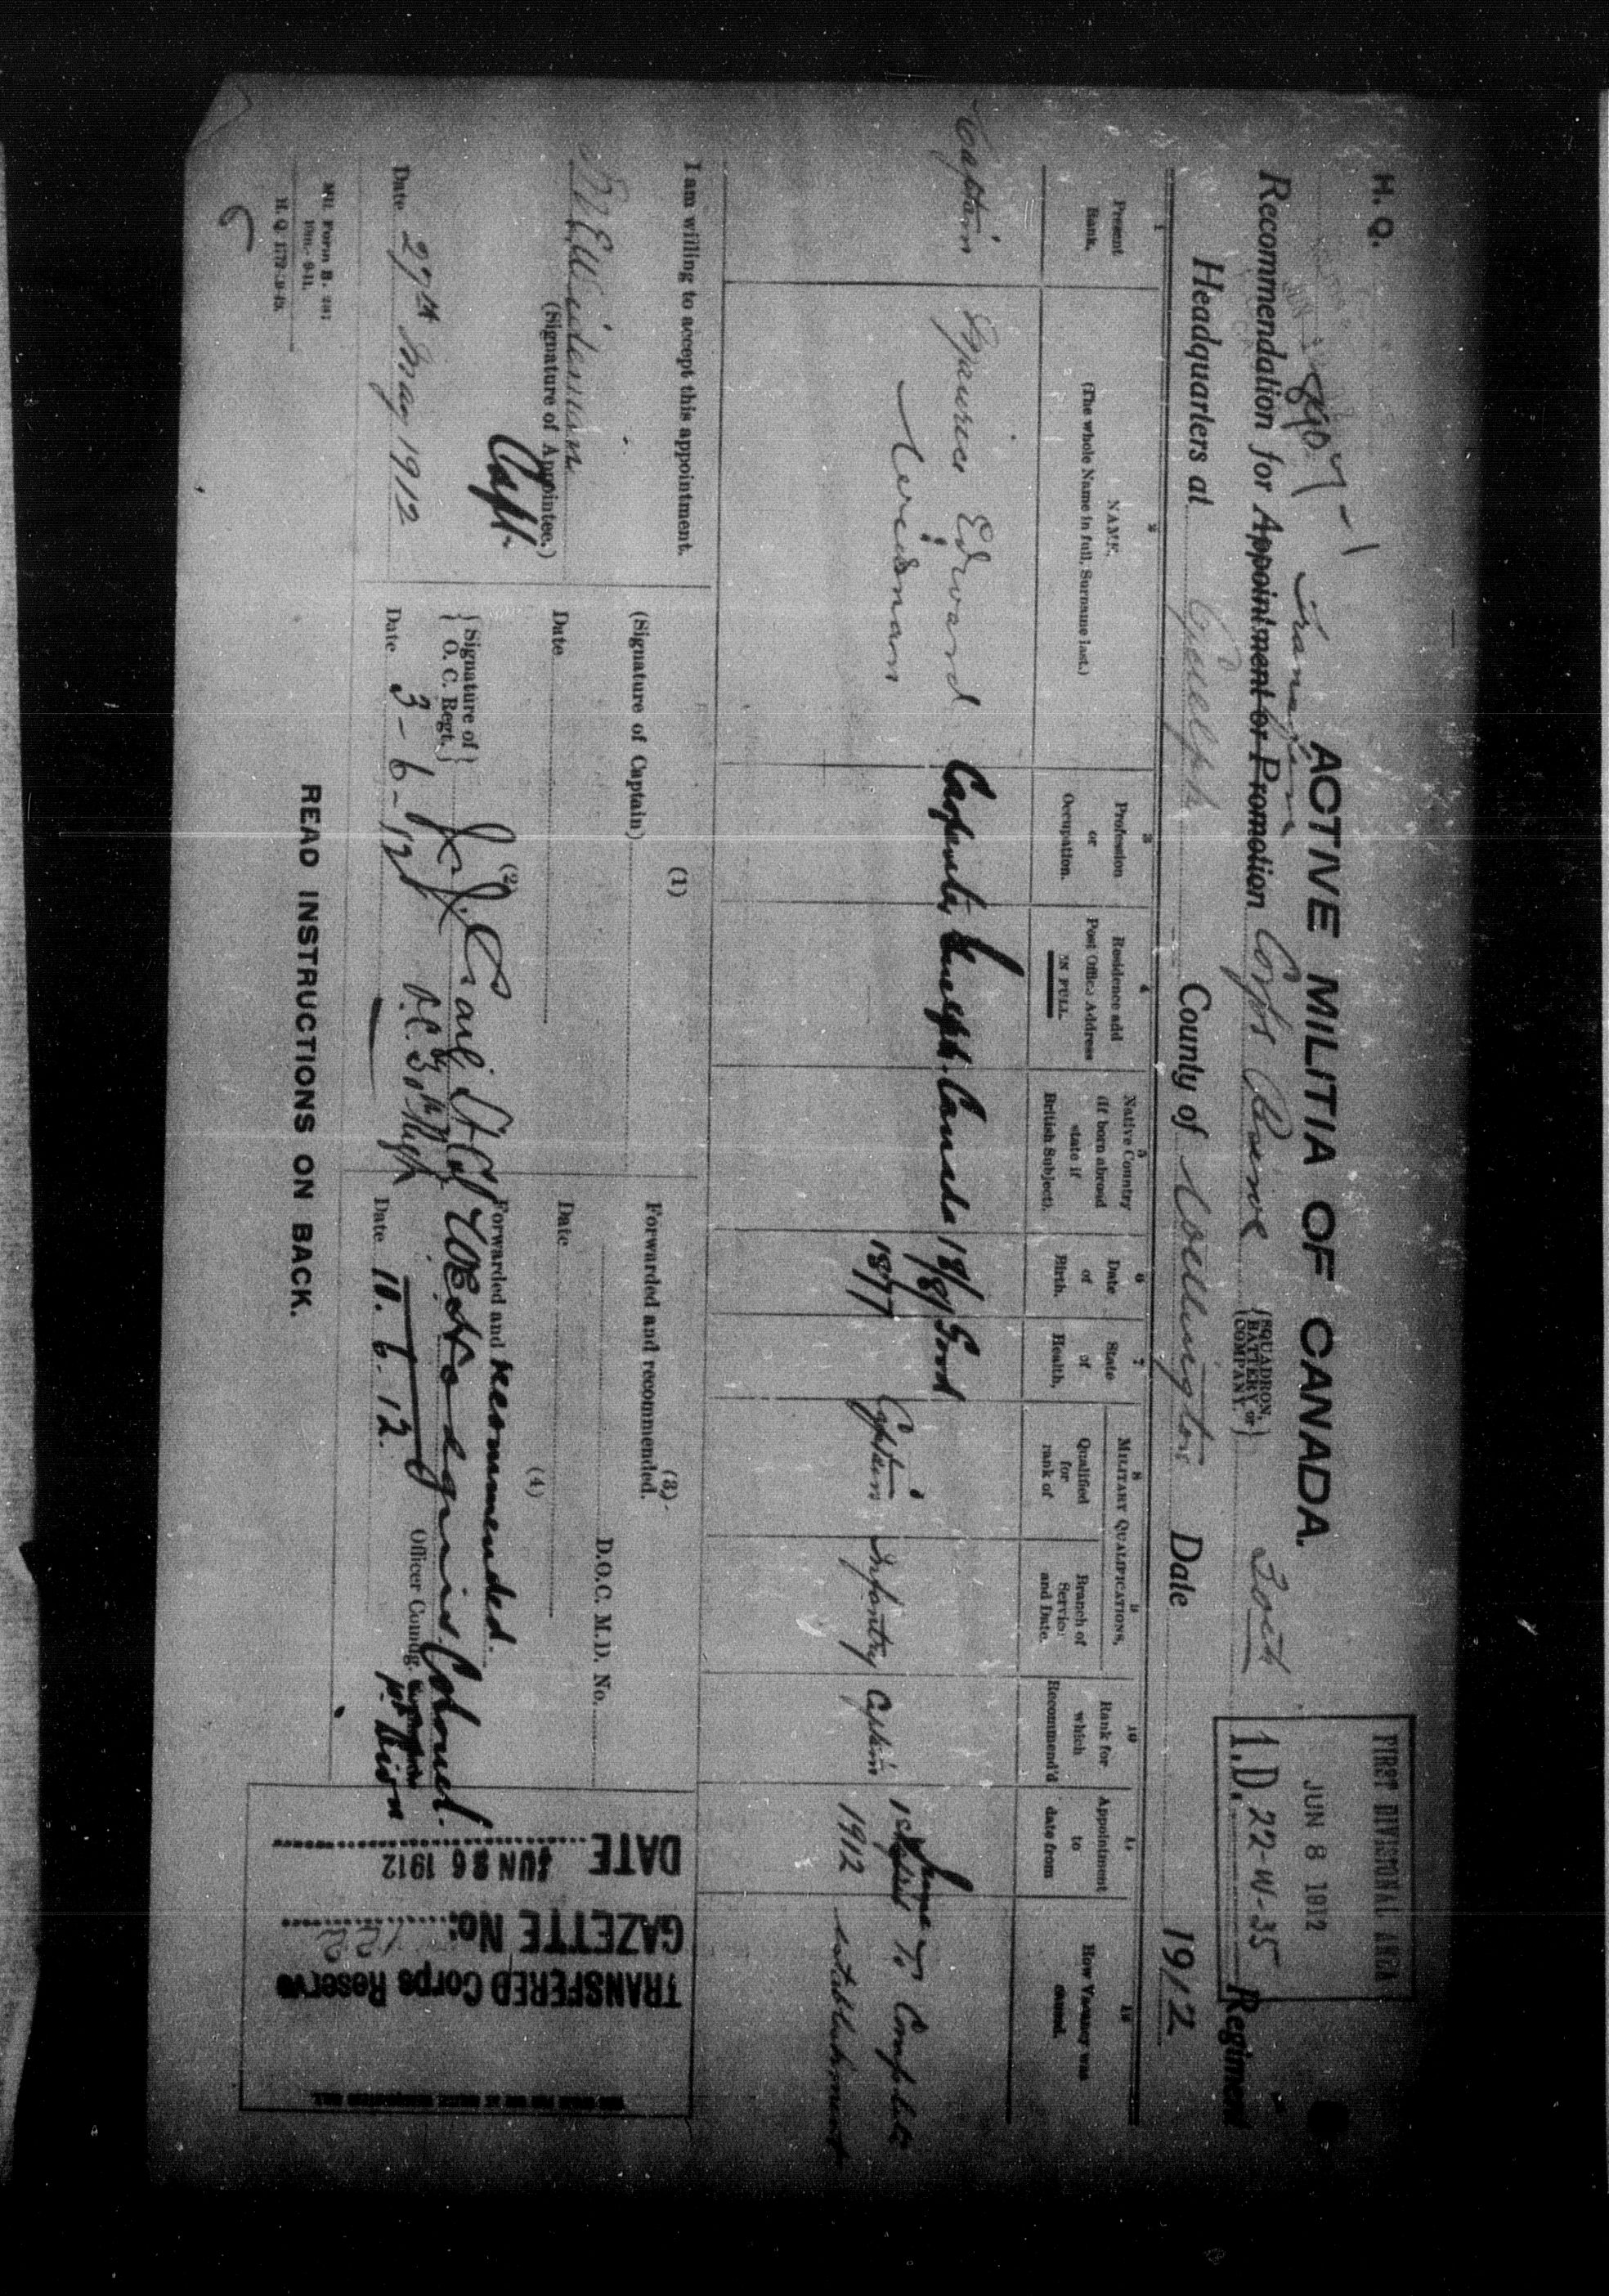 H. Q.
FIRST DIVISIONAL AREA
JUN 8 1912
1.D. 22-W-35
ACTIVE MILITIA OF CANADA.
Transfer
Recommendation for Appointment or Promotion Corps Reserve {SQUADRON, BATTERY or COMPANY.} 30th Regiment
Headquarters at Guelph County of Wellington Date 1912
1
Present
Rank.
2
NAME.
(The whole Name in full, Surname last.)
3
Profession
or
Occupation.
4
Residence add
Post Office Address
IN FULL.
5
Native Country
(If born abroad
state if
British Subject).
6
Date
of
Birth.
7
State
of
Health,
MILITARY QUALIFICATIONS,
8
Qualified
for
rank of
9
Branch of
Service
and Date.
10
Rank for
which
Recommend'd
11
Appointment
to
date from
12
How Vacancy was
caused.
Captain
Edward
Weidman
Carpenter
Guelph.
Canada
18/8/
1877
Good
Captain
Infantry
Captain
June
1st April
1912
To Complete
establishment
I am willing to accept this appointment.
M E Weidman
(Signature of Appointee.)
Capt.
Date 27th May 1912
(1)
(Signature of Captain)
Date
(2)
{Signature of O. C. Regt.}
O.C. 30th Regt
Date 3-6-12
(3)
Forwarded and recommended.
D.O.C. M.D. No.
Date
(4)
Forwarded and recommended.
W E Hodgins Colonel.
Officer Comdg.
1st Divn
Date 10. 6. 12.
DATE JUN 26 1912
GAZETTE No: 122
TRANSFERED Corps Reserve
READ INSTRUCTIONS ON BACK.
Mil. Form B. 287
H. Q. 1772-39-43.